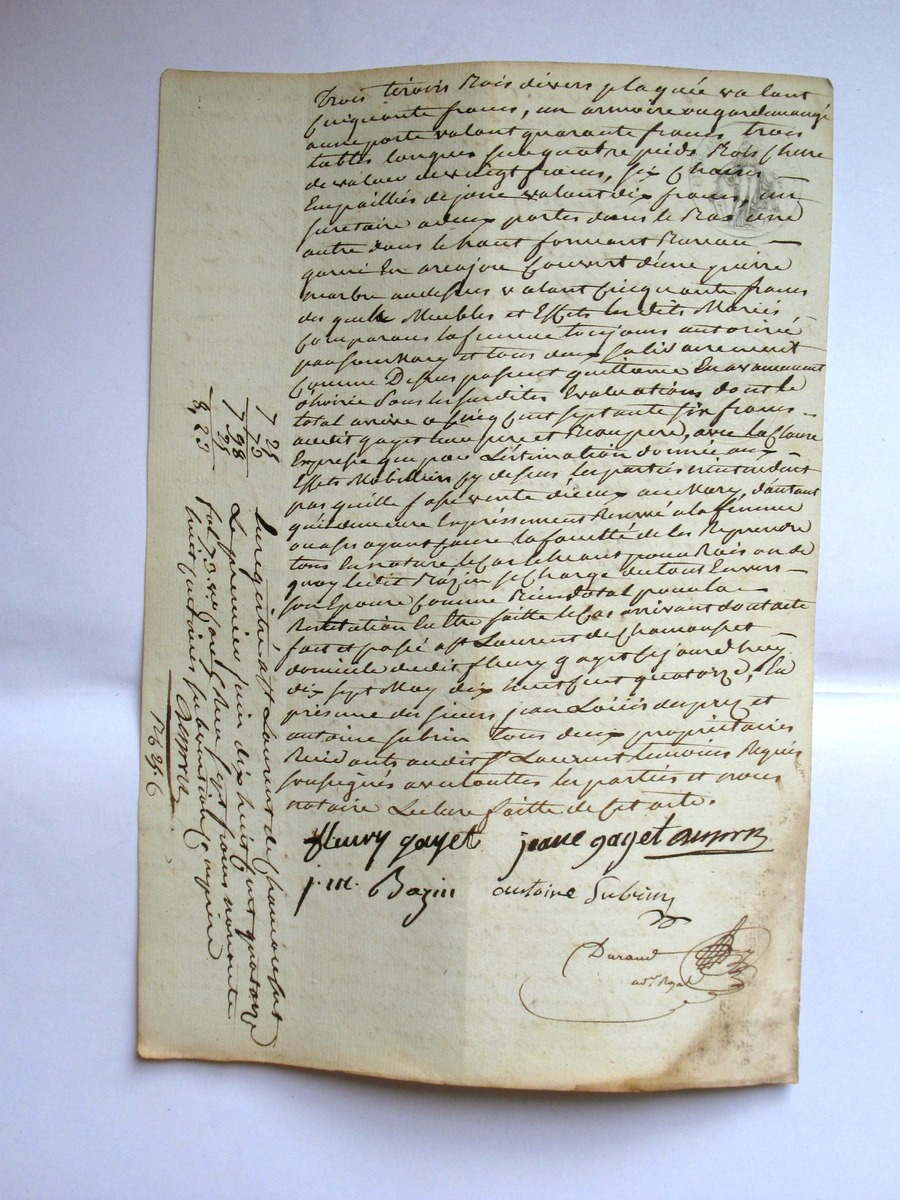 Trois tiroirs Bois divers plaquée valant
Cinquante francs, un armoire ou gardemangé
a une porte valant quarante francs, trois
tables longues sur quatre pieds Bois Chene
de valeur de vingt francs, six Chaises
Empaillés de jonc valant dix francs, un
secretaire a deux portes dans le Bas une
autre dans le haut formant Bureau
garni En acajou Couvert d'une pierre
marbre au dessus valant Cinquante francs
des quels Meubles et Effets les dits Mariés
Comparans la femme toujours autorisé
par son Mary et tous deux solidairement
Comme Dessus passent quittance En avancement
d'hoirie sous les susdites Evaluations dont le
total arrive a Cinq Cent septante six francs
audit gayet leur pere et Beaupere, avec la Clause
Expresse que par l'Estimation donnée aux
Effets Mobilliers cy dessus les parties n'entendent
pas qu'elle fasse vente d'iceux au Mary, d'autant
qu'il demeure Expressement Reservé a la femme
ou a ses ayant Cause la faculté de les Reprendre
tous En nature le Cas Echeant pour Raison de
quoy ledit Bazin se Charge du tout Envers
son Epouse Comme du total pour la
Restitution En Etre faitte le Cas arrivant dont acte
fait et passé a St Laurent de Chamousset
domicile dudit fleury gayet Cejourd'huy
dix sept May dix huit Cent quatorze, En
présence des sieurs jean Louis dupry et
antoine subrin tous deux proprietaires
Residants audit St Laurent temoins Requis
soussignés avec les parties et nous
notaire Lecture faitte de Cet acte.
fleury gayet jeane gayet
j. m. Bazin antoine Subrin
Durand
no.re Royal
7 25
73
7 98
25
8, 23
Enregistré a St Laurent de Chamousset
Le premier juin dix huit Cent quatorze
fol. 73 Reçu sept francs nonante
huit Centimes subvention Comprise